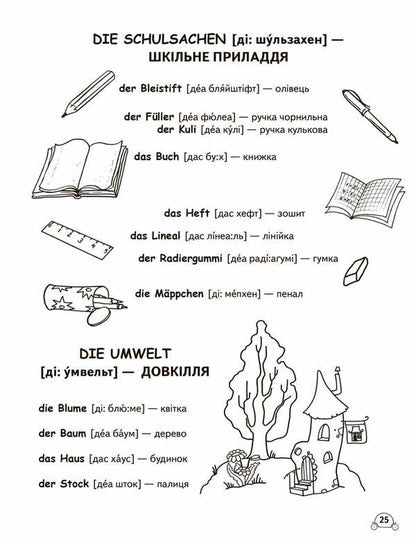 DIE SCHULSACHEN [ді: шу́льзахен] —
ШКІЛЬНЕ ПРИЛАДДЯ
der Bleistift [де́а бля́йштіфт] — олівець
der Füller [де́а фю́леа] — ручка чорнильна
der Kuli [де́а ку́лі] — ручка кулькова
das Buch [дас бу:х] — книжка
das Heft [дас хефт] — зошит
das Lineal [дас лі́неа:ль] — лінійка
der Radiergummi [де́а раді́:аґумі] — гумка
die Mäppchen [ді: ме́пхен] — пенал
1 2 3 4 5
DIE UMWELT
[ді: у́мвельт] — ДОВКІЛЛЯ
die Blume [ді: блю́:ме] — квітка
der Baum [де́а ба́ум] — дерево
das Haus [дас ха́ус] — будинок
der Stock [де́а шток] — палиця
25